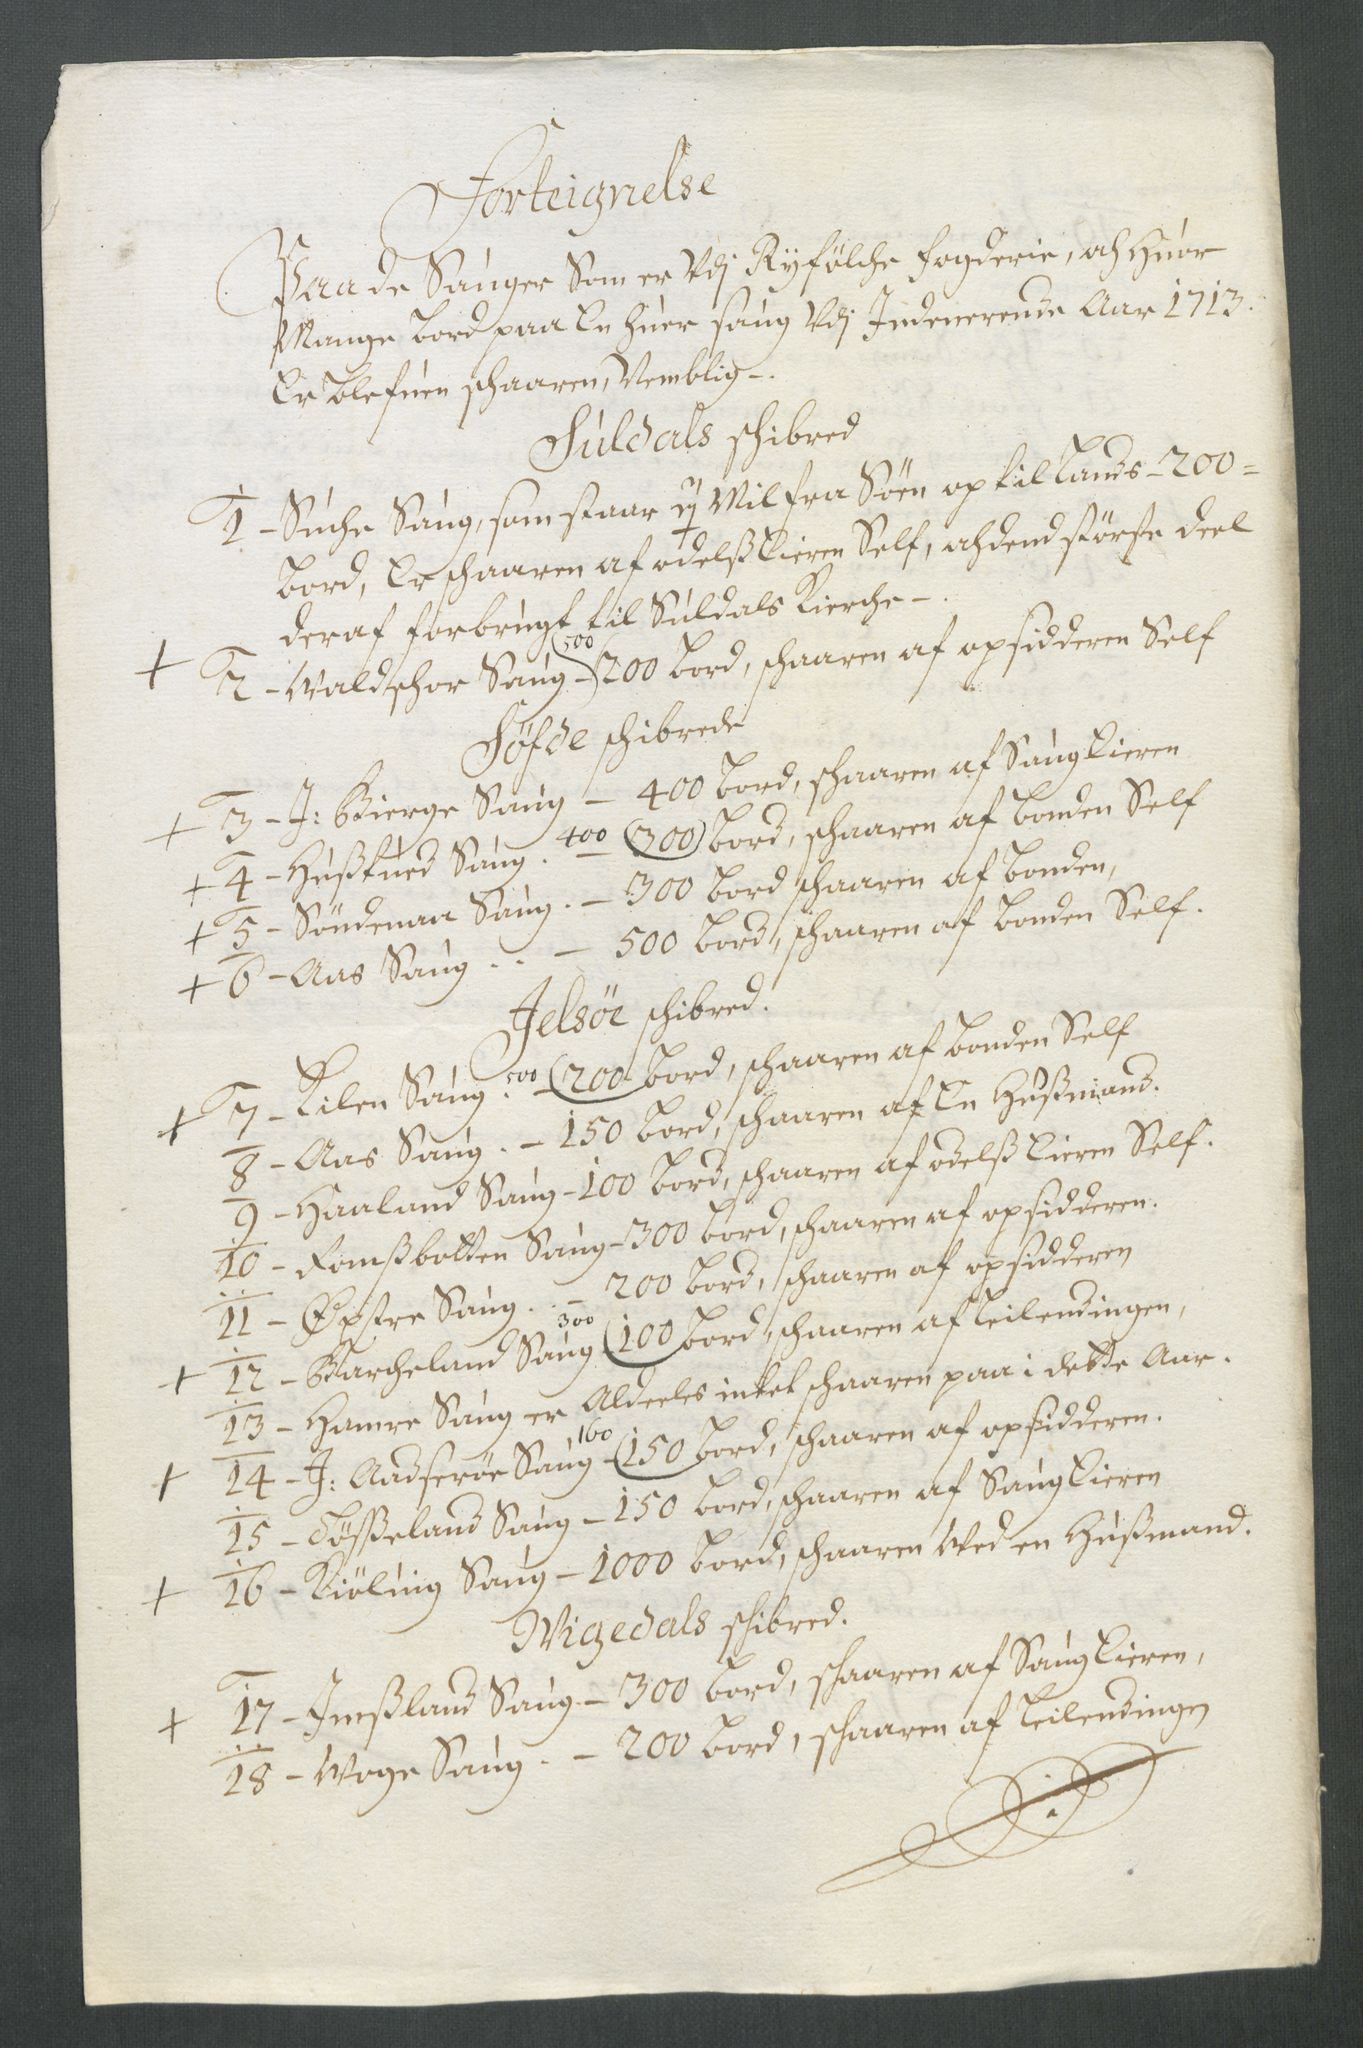 Forteignelse
Paa de Sauger Som er Vdj Ryfölche fogderie, och Huor
Mange bord paa En huer saug Vdj Indeverende Aar 1713.
Er blefuen schaaren, Nemblig-.
Suldals schibred
1 - Suche Saug, som staar Mil fra Söen op til Lands - 200=
bord, Er schaaren af odelß Eieren Self, och dend störste deel
deraf forbrugt til Suldals Kierche -.
+ 2 - Waldschor Saug - 500 (200 bord, schaaren af opsidderen Self
Söfde schibrede
+ 3 - J: Bierge Saug - 400 bord, schaaren af Saug Eieren
+ 4 - Hußtued Saug. 400 (300) bord, schaaren af bonden Self
+ 5 - Söndenaa Saug. - 300 bord schaaren af bonden,
+ 6 - Aas Saug .. - 500 bord, schaaren af bonden Self.
Jelsöe schibred.
+ 7 - Kilen Saug. 500 (200 bord, schaaren af bonden Self
8 - Aas Saug. - 150 bord, schaaren af En Hußmand.
9 - Haaland Saug - 100 bord, schaaren af odelß Eieren Self.
10 - Fomßbotten Saug - 300 bord, schaaren af opsidderen.
11 - Øystre Saug. .- 200 bord, schaaren af opsidderen
+ 12 - Barcheland Saug 300 (100 bord, schaaren af Leilendingen,
13 - Hamre Saug er Aldeeles intet schaaren paa i dette Aar.
+ 14 - J: Aadseröe Saug 160 (150 bord, schaaren af opsidderen.
15 - Tösseland Saug - 150 bord, schaaren af Saug Eieren
+ 16 - Kiöluig Saug - 1000 bord, schaaren Wed en Hußmand.
Wigedals schibred.
+ 17 - Imßland Saug. - 300 bord, schaaren af Saug Eieren,
18 - Woge Saug. - 200 bord, schaaren af Leilendingen